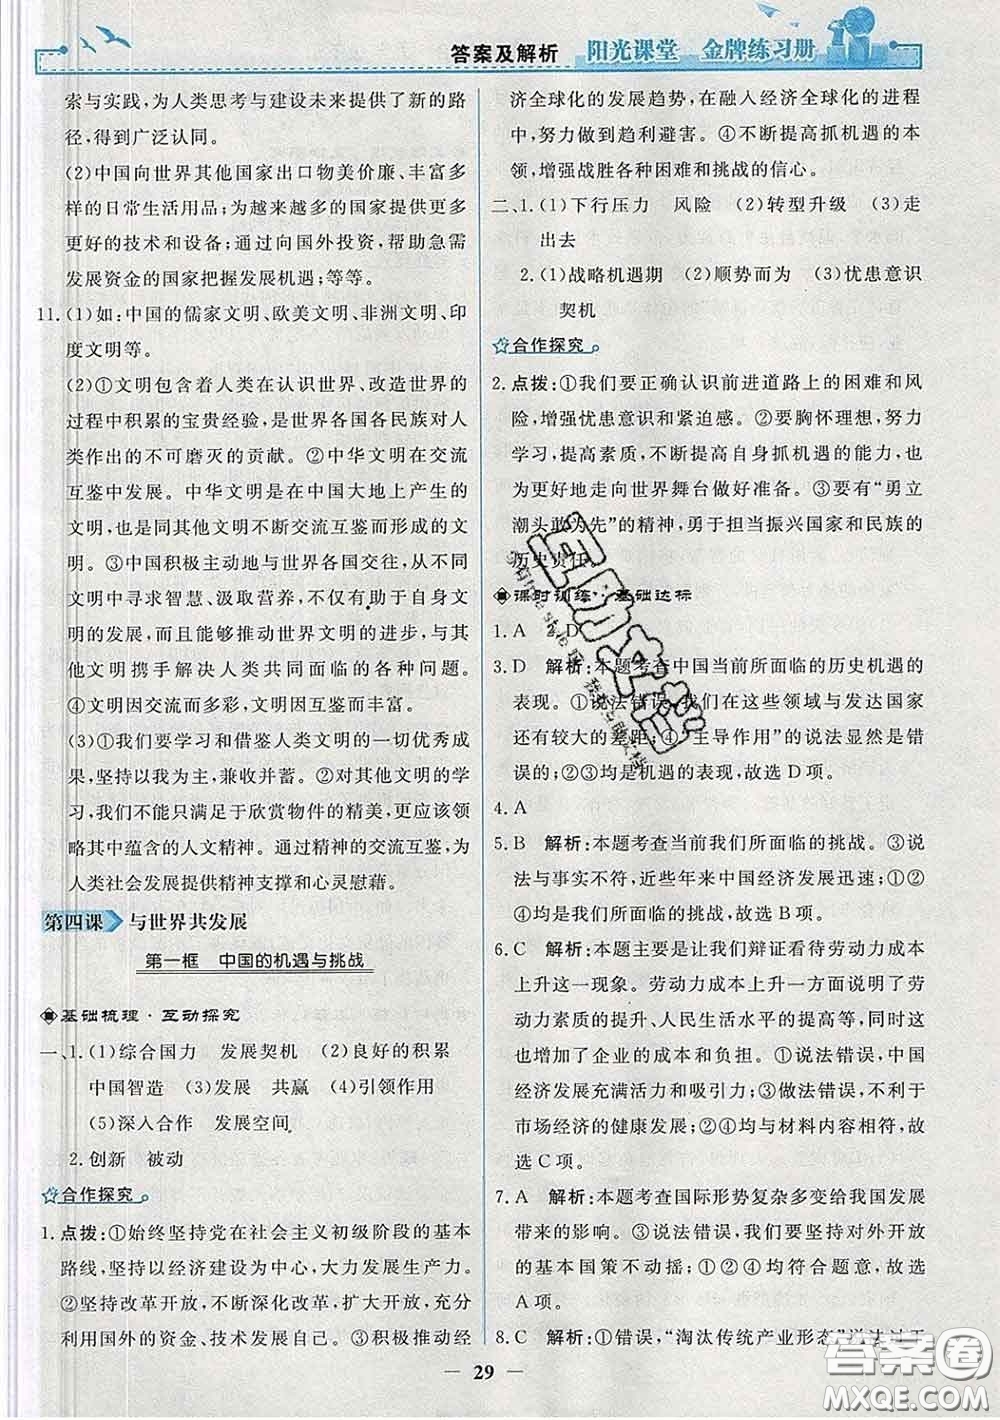 答案及解析 阳光课堂 金牌练习册
索与实践,为人类思考与建设未来提供了新的路
径,得到广泛认同。
(2)中国向世界其他国家出口物美价廉、丰富多
样的日常生活用品;为越来越多的国家提供更多
更好的技术和设备;通过向国外投资,帮助急需
发展资金的国家把握发展机遇;等等。
11.(1)如:中国的儒家文明、欧美文明、非洲文明、印
度文明等。
(2)①文明包含着人类在认识世界、改造世界的
过程中积累的宝贵经验,是世界各国各民族对人
类作出的不可磨灭的贡献。②中华文明在交流
互鉴中发展。中华文明是在中国大地上产生的
文明,也是同其他文明不断交流互鉴而形成的文
明。③中国积极主动地与世界各国交往,从不同
文明中寻求智慧、汲取营养,不仅有助于自身文
明的发展,而且能够推动世界文明的进步,与其
他文明携手解决人类共同面临的各种问题。
④文明因交流而多彩,文明因互鉴而丰富。
(3)①我们要学习和借鉴人类文明的一切优秀成
果,坚持以我为主,兼收并蓄。②对其他文明的学
习,我们不能只满足于欣赏物件的精美,更应该领
略其中蕴含的人文精神。通过精神的交流互鉴,为
人类社会发展提供精神支撑和心灵慰藉。
第四课 与世界共发展
第一框 中国的机遇与挑战
基础梳理·互动探究
一、1.(1)综合国力 发展契机 (2)良好的积累
中国智造 (3)发展 共赢 (4)引领作用
(5)深入合作 发展空间
2.创新 被动
合作探究
1.点拨:①始终坚持党在社会主义初级阶段的基本
路线,坚持以经济建设为中心,大力发展生产力。
②坚持改革开放,不断深化改革,扩大开放,充分
利用国外的资金、技术发展自己。③积极推动经
济全球化的发展趋势,在融入经济全球化的进程
中,努力做到趋利避害。④不断提高抓机遇的本
领,增强战胜各种困难和挑战的信心。
二、1.(1)下行压力 风险 (2)转型升级 (3)走
出去
2.(1)战略机遇期 (2)顺势而为 (3)忧患意识
契机
合作探究
2.点拨:①我们要正确认识前进道路上的困难和风
险,增强忧患意识和紧迫感。②要胸怀理想,努力
学习,提高素质,不断提高自身抓机遇的能力,也
为更好地走向世界舞台做好准备。③要有“勇立
潮头敢为先”的精神,勇于担当振兴国家和民族的
历史责任。
课时训练·基础达标
1.A D
3.D 解析:本题考查中国当前所面临的历史机遇的
表现。①说法错误,我们在这些领域与发达国家
还有较大的差距;④“主导作用”的说法显然是错
误的;②③均是机遇的表现,故选D项。
4.A
5.B 解析:本题考查当前我们所面临的挑战。③说
法与事实不符,近些年来中国经济发展迅速;①②
④均是我们面临的挑战,故选B项。
6.C 解析:本题主要是让我们辩证看待劳动力成本
上升这一现象。劳动力成本上升一方面说明了劳
动力素质的提升、人民生活水平的提高等,同时这
也增加了企业的成本和负担。①说法错误,中国
经济发展充满活力和吸引力;③做法错误,不利于
市场经济的健康发展;②④均与材料内容相符,故
选C项。
7.A 解析:本题考查国际形势复杂多变给我国发展
带来的影响。③说法错误,我们要坚持对外开放
的基本国策不动摇;①②④均符合题意,故选
A项。
8.C 解析:①错误,“淘汰传统产业形态”说法过于
29
答案圈
MXQE.COM